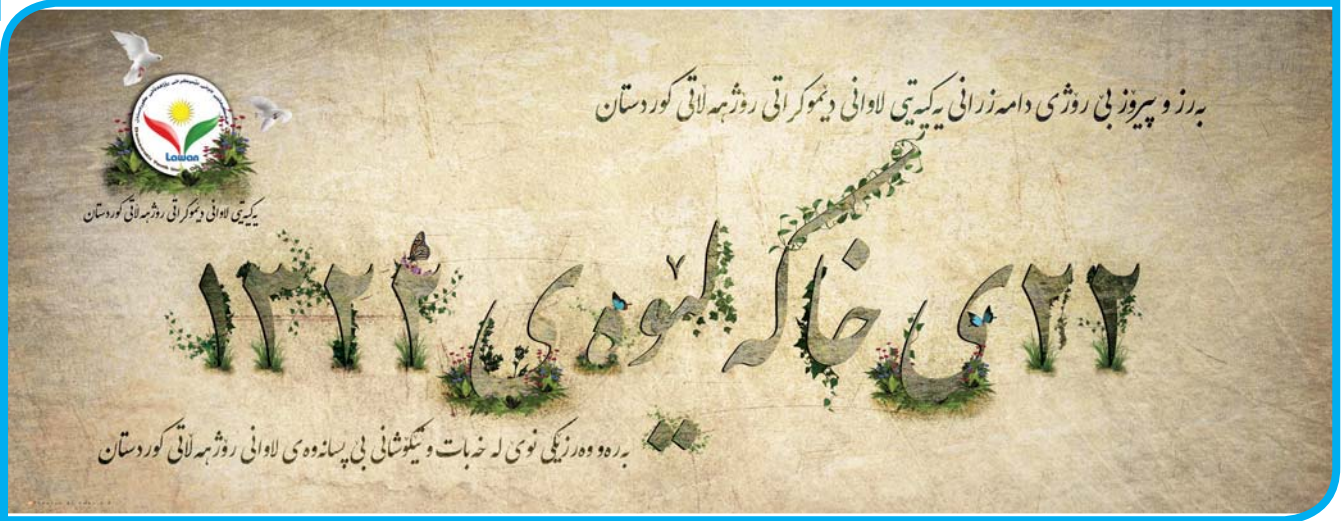 بەرز و پیرۆز بێ رۆژی دامەزرانی یەکیەتیی لاوانی دێموکراتی رۆژهەڵاتی کوردستان
Lawan
یەکیەتیی لاوانی دێموکراتی رۆژهەڵاتی کوردستان
۲۲ی خاکەلێوەی ۱۳۲۴
بەرەو وەرزێکی نوێ لە خەبات و تێکۆشانی بێ پسانەوەی لاوانی رۆژهەڵاتی کوردستان